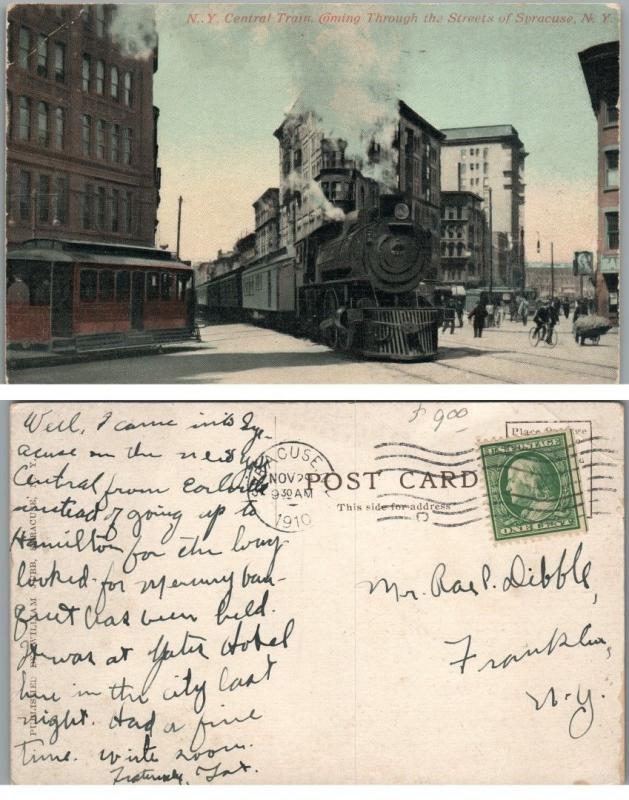 N. Y. Central Train, Coming Through the Streets of Spracuse, N. Y.
Well, I came into Sy-
acuse on the new y
Central from Earlville
instead of going up to
Hamilton for the long
looked-for Mercury ban-
quet has been held.
It was at Yates Hotel
here in the city last
night. Had a fine
time. Write soon.
Fraternally,
PUBLISHED BY WILLIAM JUBB, SYRACUSE, N. Y.
$ 9.00
SYRACUSE, N.Y.
NOV 29
930 AM
1910
POST CARD
This side for address
Place Postage
U.S. POSTAGE
ONE CENT
Mr. Rae P. Dibble,
Franklin,
N.Y.